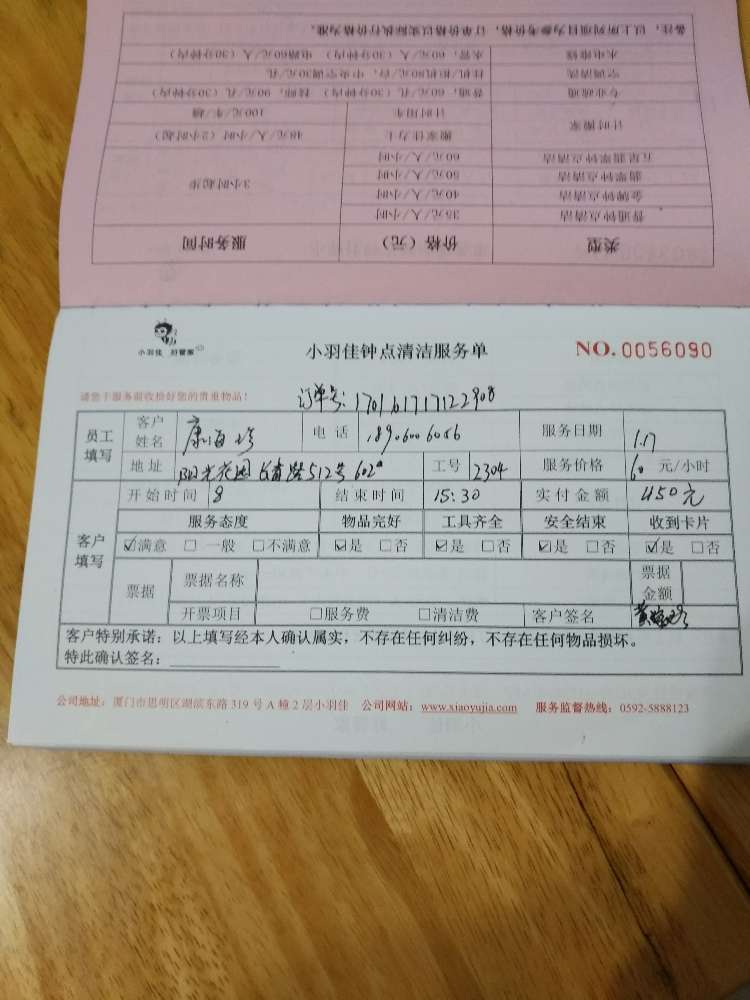 备注：以上所列项目为参考价格，订单价格以实际执行价格为准。
水电维修 水管，60元/人（30分钟内） 电路60元/人（30分钟内）
空调清洗 挂机/柜机80元/台，中央空调30元/孔
专业疏通 普通，60元/孔（30分钟内） 技师，90元/孔（30分钟内）
计时搬家 计时用车 100元/车/趟
搬家佳力士 48元/人/小时（2小时起）
五星翡翠钟点清洁 60元/人/小时 3小时起步
翡翠钟点清洁 50元/人/小时
金牌钟点清洁 40元/人/小时
普通钟点清洁 35元/人/小时
类型 价格（元） 服务时间
小羽佳 好管家
小羽佳钟点清洁服务单
NO.0056090
请您于服务前收捡好您的贵重物品！
订单号：17016171712 2908
员工填写 客户姓名 康海珍 电话 1890600 6056 服务日期 1.17
地址 阳光花园长青路512号602 工号 2304 服务价格 60 元/小时
客户填写 开始时间 8 结束时间 15:30 实付金额 450元
服务态度 物品完好 工具齐全 安全结束 收到卡片
☑满意 □一般 □不满意 ☑是 □否 ☑是 □否 ☑是 □否 ☑是 □否
票据 票据名称 票据金额
开票项目 □服务费 □清洁费 客户签名
客户特别承诺：以上填写经本人确认属实，不存在任何纠纷，不存在任何物品损坏。
特此确认签名：
公司地址：厦门市思明区湖滨东路 319 号 A 幢 2 层小羽佳 公司网站：www.xiaoyujia.com 服务监督热线：0592-5888123